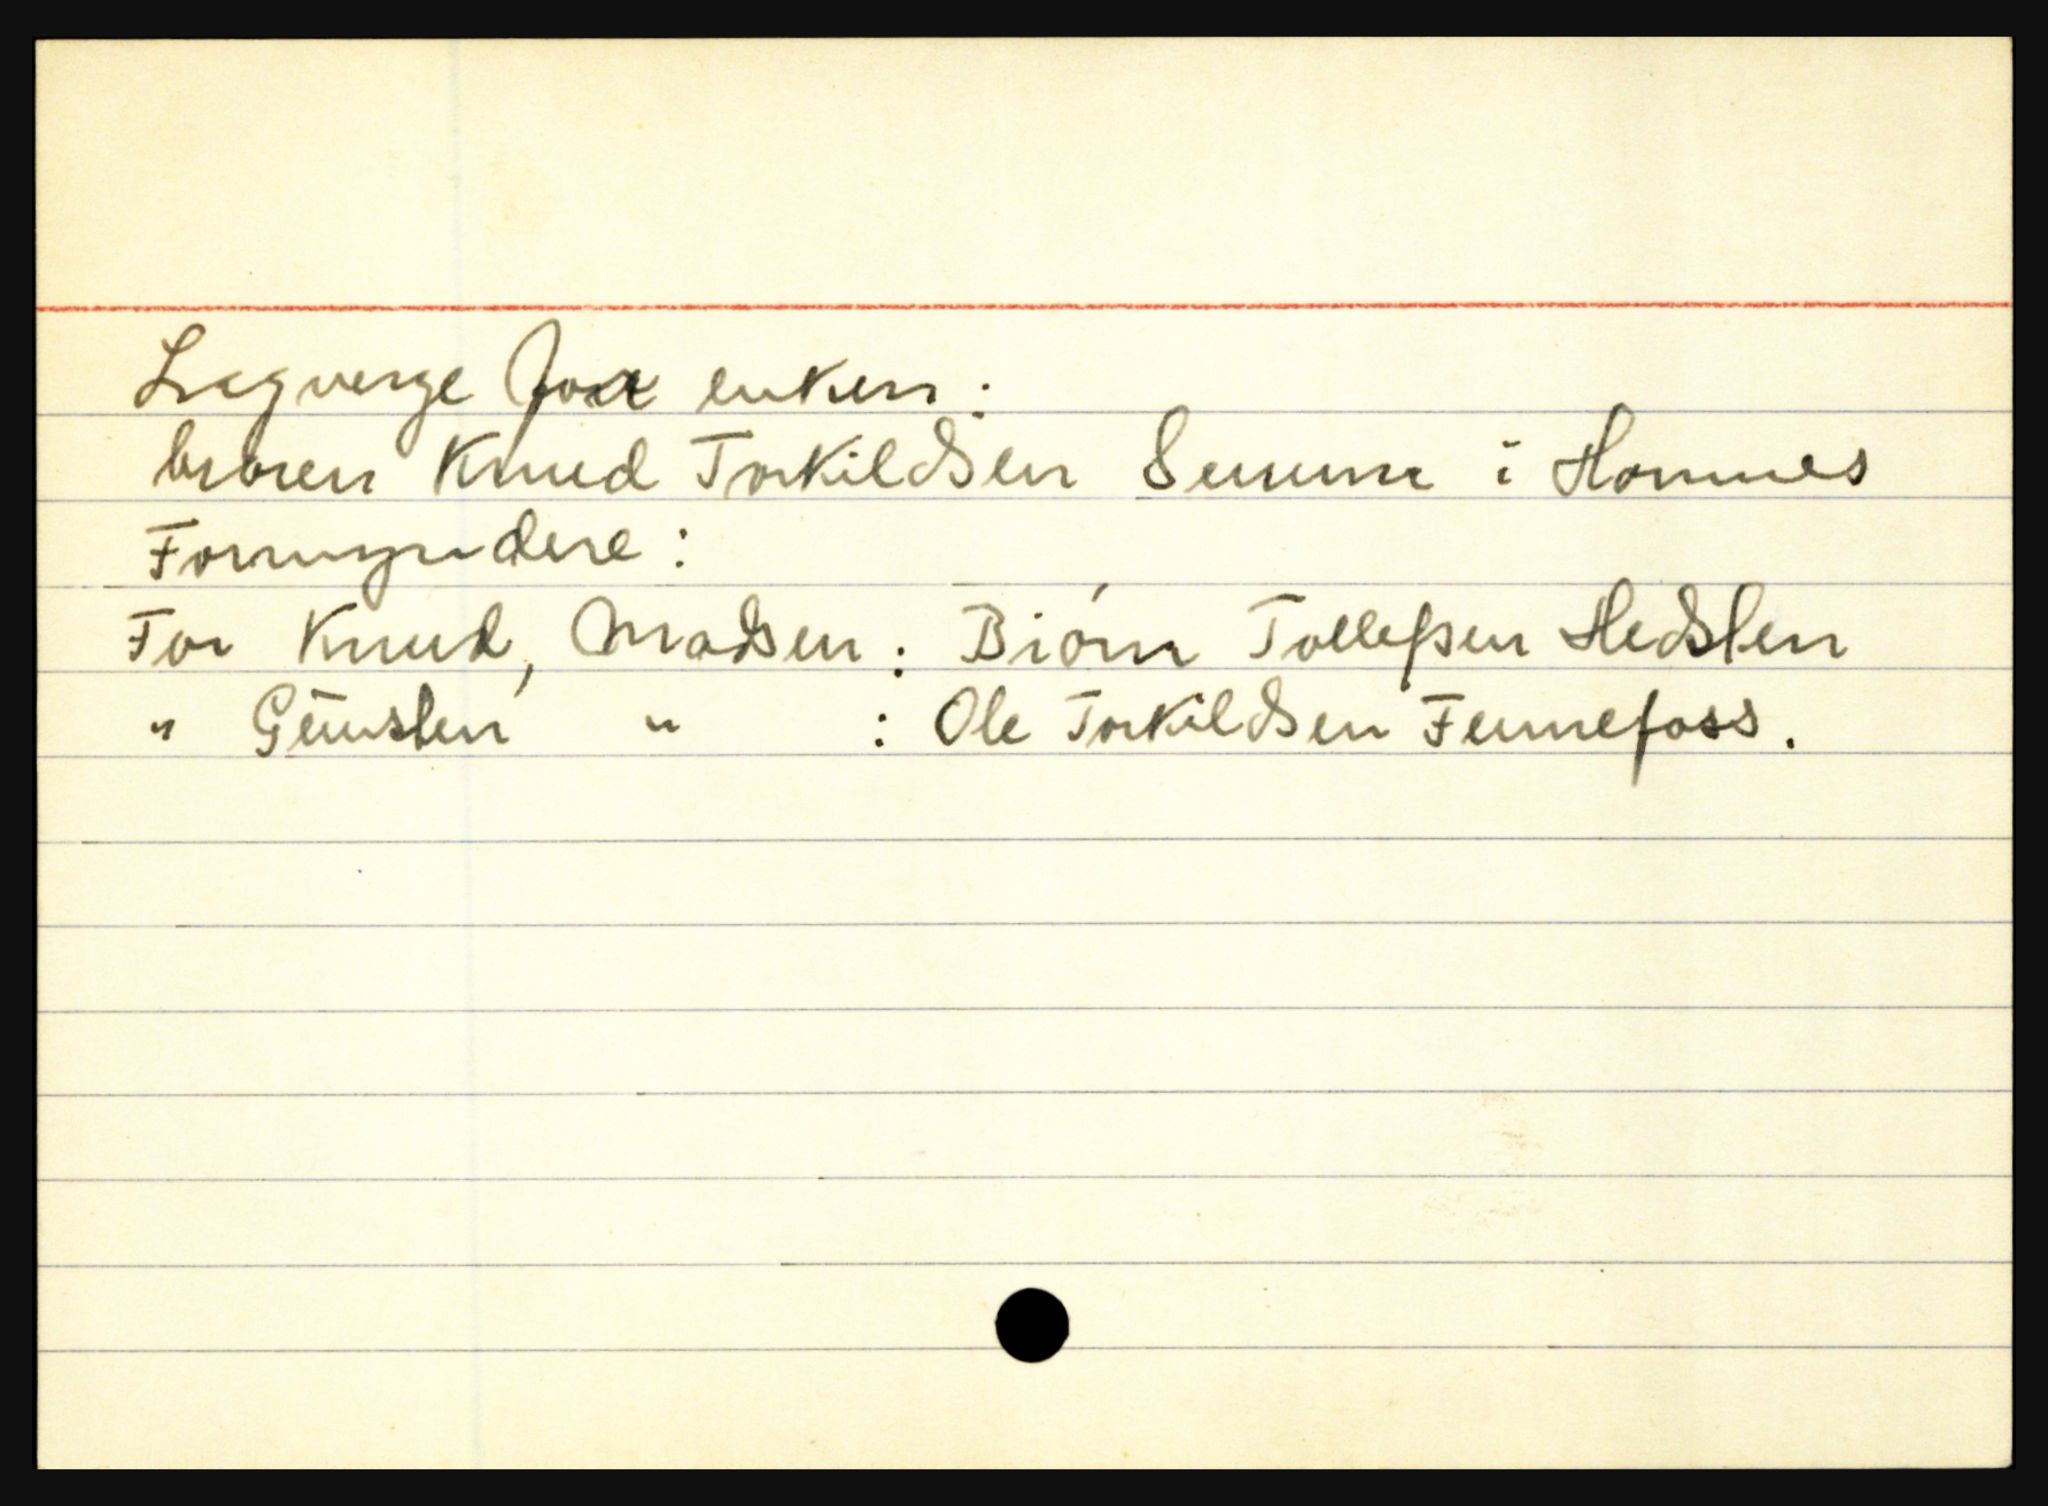 Lagverge for enken:
broren Knud Torkildsen Senum i Homnes
Formyndere:
For Knud, Madsen: Biórn Tollefsen Hedsten
" Gunsten " : Ole Torkildsen Fennefoss.